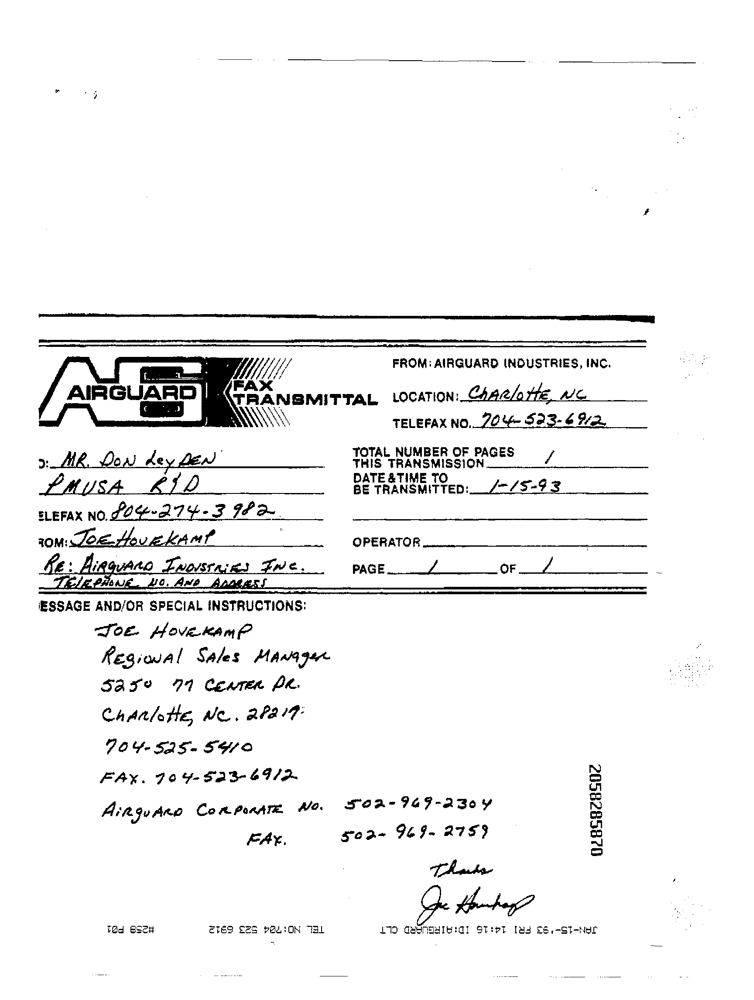 AIRGUARD
FAX
TRANSMITTAL
FROM: AIRGUARD INDUSTRIES, INC.
LOCATION: CHARlOTTE, NC
TELEFAX NO. 704-523-6912
O: MR. DON LeyDEN
PMUSA R&D
ELEFAX NO. 804-274-3982
ROM: JOE HOVEKAMP
RE: AIRGUARD INDUSTRIES INC.
TELEPHONE NO. AND ADDRESS
TOTAL NUMBER OF PAGES
THIS TRANSMISSION 1
DATE & TIME TO
BE TRANSMITTED: 1-15-93
OPERATOR
PAGE 1 OF 1
ESSAGE AND/OR SPECIAL INSTRUCTIONS:
JOE HOVEKAMP
REGIONAl SAles MANAger
5250 77 CENTER DR.
CHARlOTTE, NC. 28217
704-525-5410
FAX. 704-523-6912
AIRGUARD CORPORATE NO. 502-969-2304
FAX. 502-969-2759
Thanks
Joe Hovekamp
2058285870
JAN-15-'93 FRI 14:16 ID:AIRGUARD CLT TEL NO:704 523 6912 #259 P01